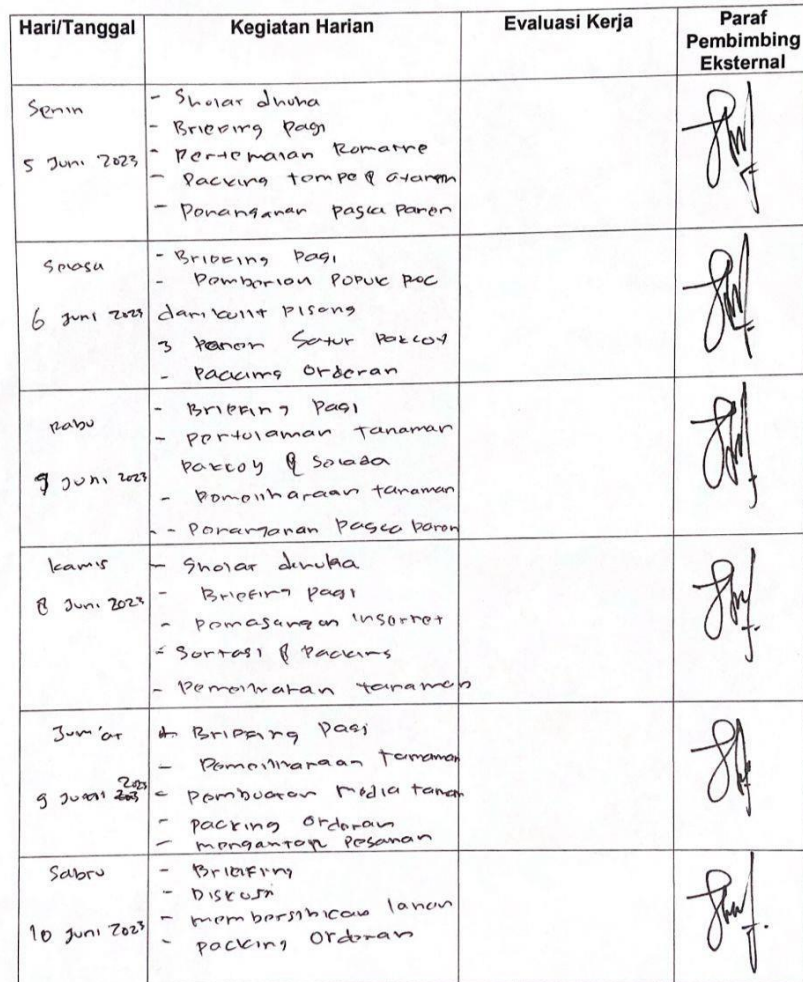 Hari/Tanggal
Kegiatan Harian
Evaluasi Kerja
Paraf
Pembimbing
Eksternal
Senin
5 Juni 2023
- Sholat dhuha
- Briefing Pagi
- Pertemaian Romatre
- Packing tempe & ayaman
- Penanganan pasca panen
Selasa
6 Juni 2023
- Briefing Pagi
- Pemberian Pupuk POC
dari kulit Pisang
3 Panen Sayur Pakcoy
- Packing Orderan
Rabu
7 Juni 2023
- Briefing Pagi
- Pertulaman tanaman
Pakcoy & Selada
- Pemeliharaan tanaman
- - Penanganan Pasca Panen
Kamis
8 Juni 2023
- Sholat dhuha
- Briefing Pagi
- Pemasangan insectnet
- Sortasi & Packing
- Pemeliharaan tanaman
Jum'at
9 Juni 2023
- Briefing Pagi
- Pemeliharaan tanaman
- Pembuatan Media tanam
- Packing Orderan
- mengantar Pesanan
Sabtu
10 Juni 2023
- Briefing
- Diskusi
- membersihkan lahan
- Packing Orderan